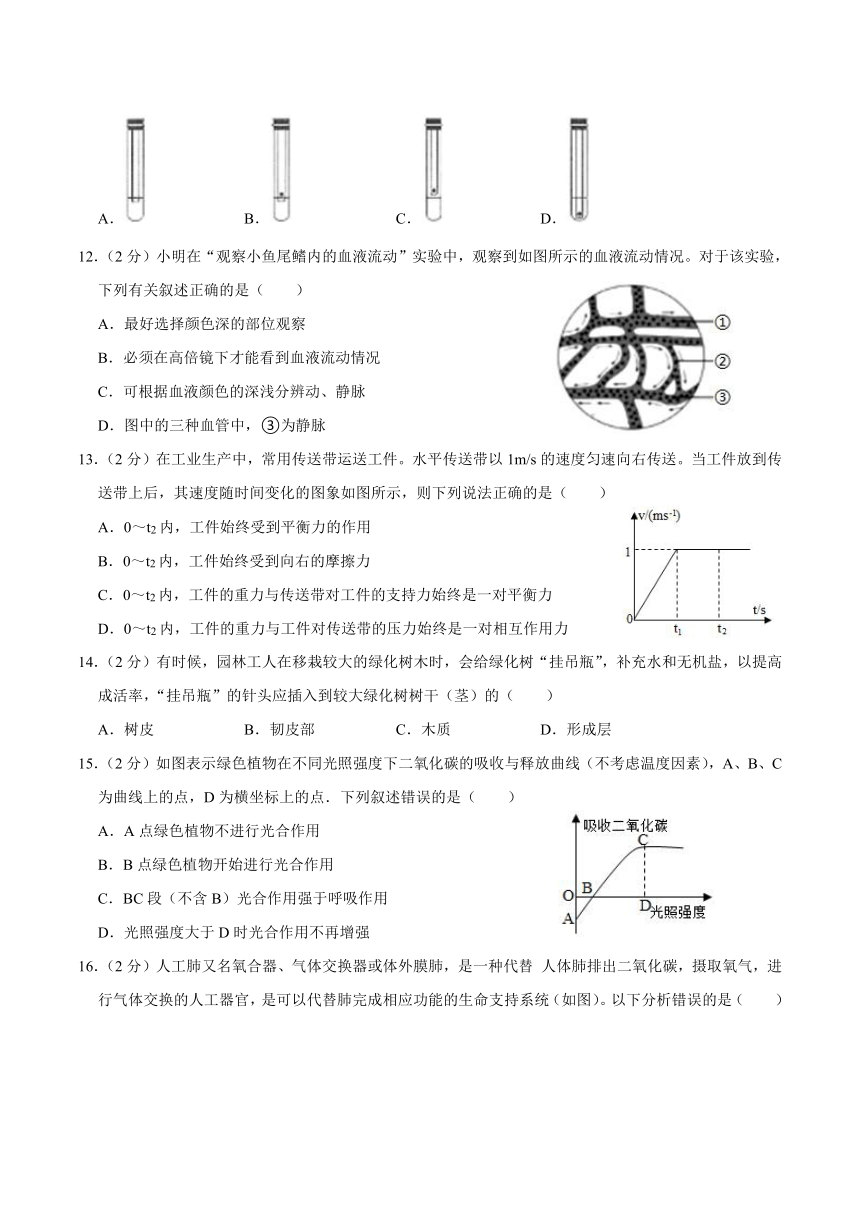 A. B. C. D.
12.(2 分)小明在“观察小鱼尾鳍内的血液流动”实验中，观察到如图所示的血液流动情况。对于该实验，
下列有关叙述正确的是（　　）
A．最好选择颜色深的部位观察
B．必须在高倍镜下才能看到血液流动情况
C．可根据血液颜色的深浅分辨动、静脉
D．图中的三种血管中，③为静脉
①
②
③
13.(2 分)在工业生产中，常用传送带运送工件。水平传送带以 1m/s 的速度匀速向右传送。当工件放到传
送带上后，其速度随时间变化的图象如图所示，则下列说法正确的是（　　）
A．0～t2 内，工件始终受到平衡力的作用
B．0～t2 内，工件始终受到向右的摩擦力
C．0～t2 内，工件的重力与传送带对工件的支持力始终是一对平衡力
D．0～t2 内，工件的重力与工件对传送带的压力始终是一对相互作用力
v/(ms-1)
1
0
t1 t2
t/s
14.(2 分)有时候，园林工人在移栽较大的绿化树木时，会给绿化树“挂吊瓶”，补充水和无机盐，以提高
成活率，“挂吊瓶”的针头应插入到较大绿化树树干（茎）的（　　）
A．树皮 B．韧皮部 C．木质 D．形成层
15.(2 分)如图表示绿色植物在不同光照强度下二氧化碳的吸收与释放曲线（不考虑温度因素），A、B、C
为曲线上的点，D 为横坐标上的点．下列叙述错误的是（　　）
A．A 点绿色植物不进行光合作用
B．B 点绿色植物开始进行光合作用
C．BC 段（不含 B）光合作用强于呼吸作用
D．光照强度大于 D 时光合作用不再增强
吸收二氧化碳
C
O B
D 光照强度
A
16.(2 分)人工肺又名氧合器、气体交换器或体外膜肺，是一种代替 人体肺排出二氧化碳，摄取氧气，进
行气体交换的人工器官，是可以代替肺完成相应功能的生命支持系统（如图）。以下分析错误的是（　　）